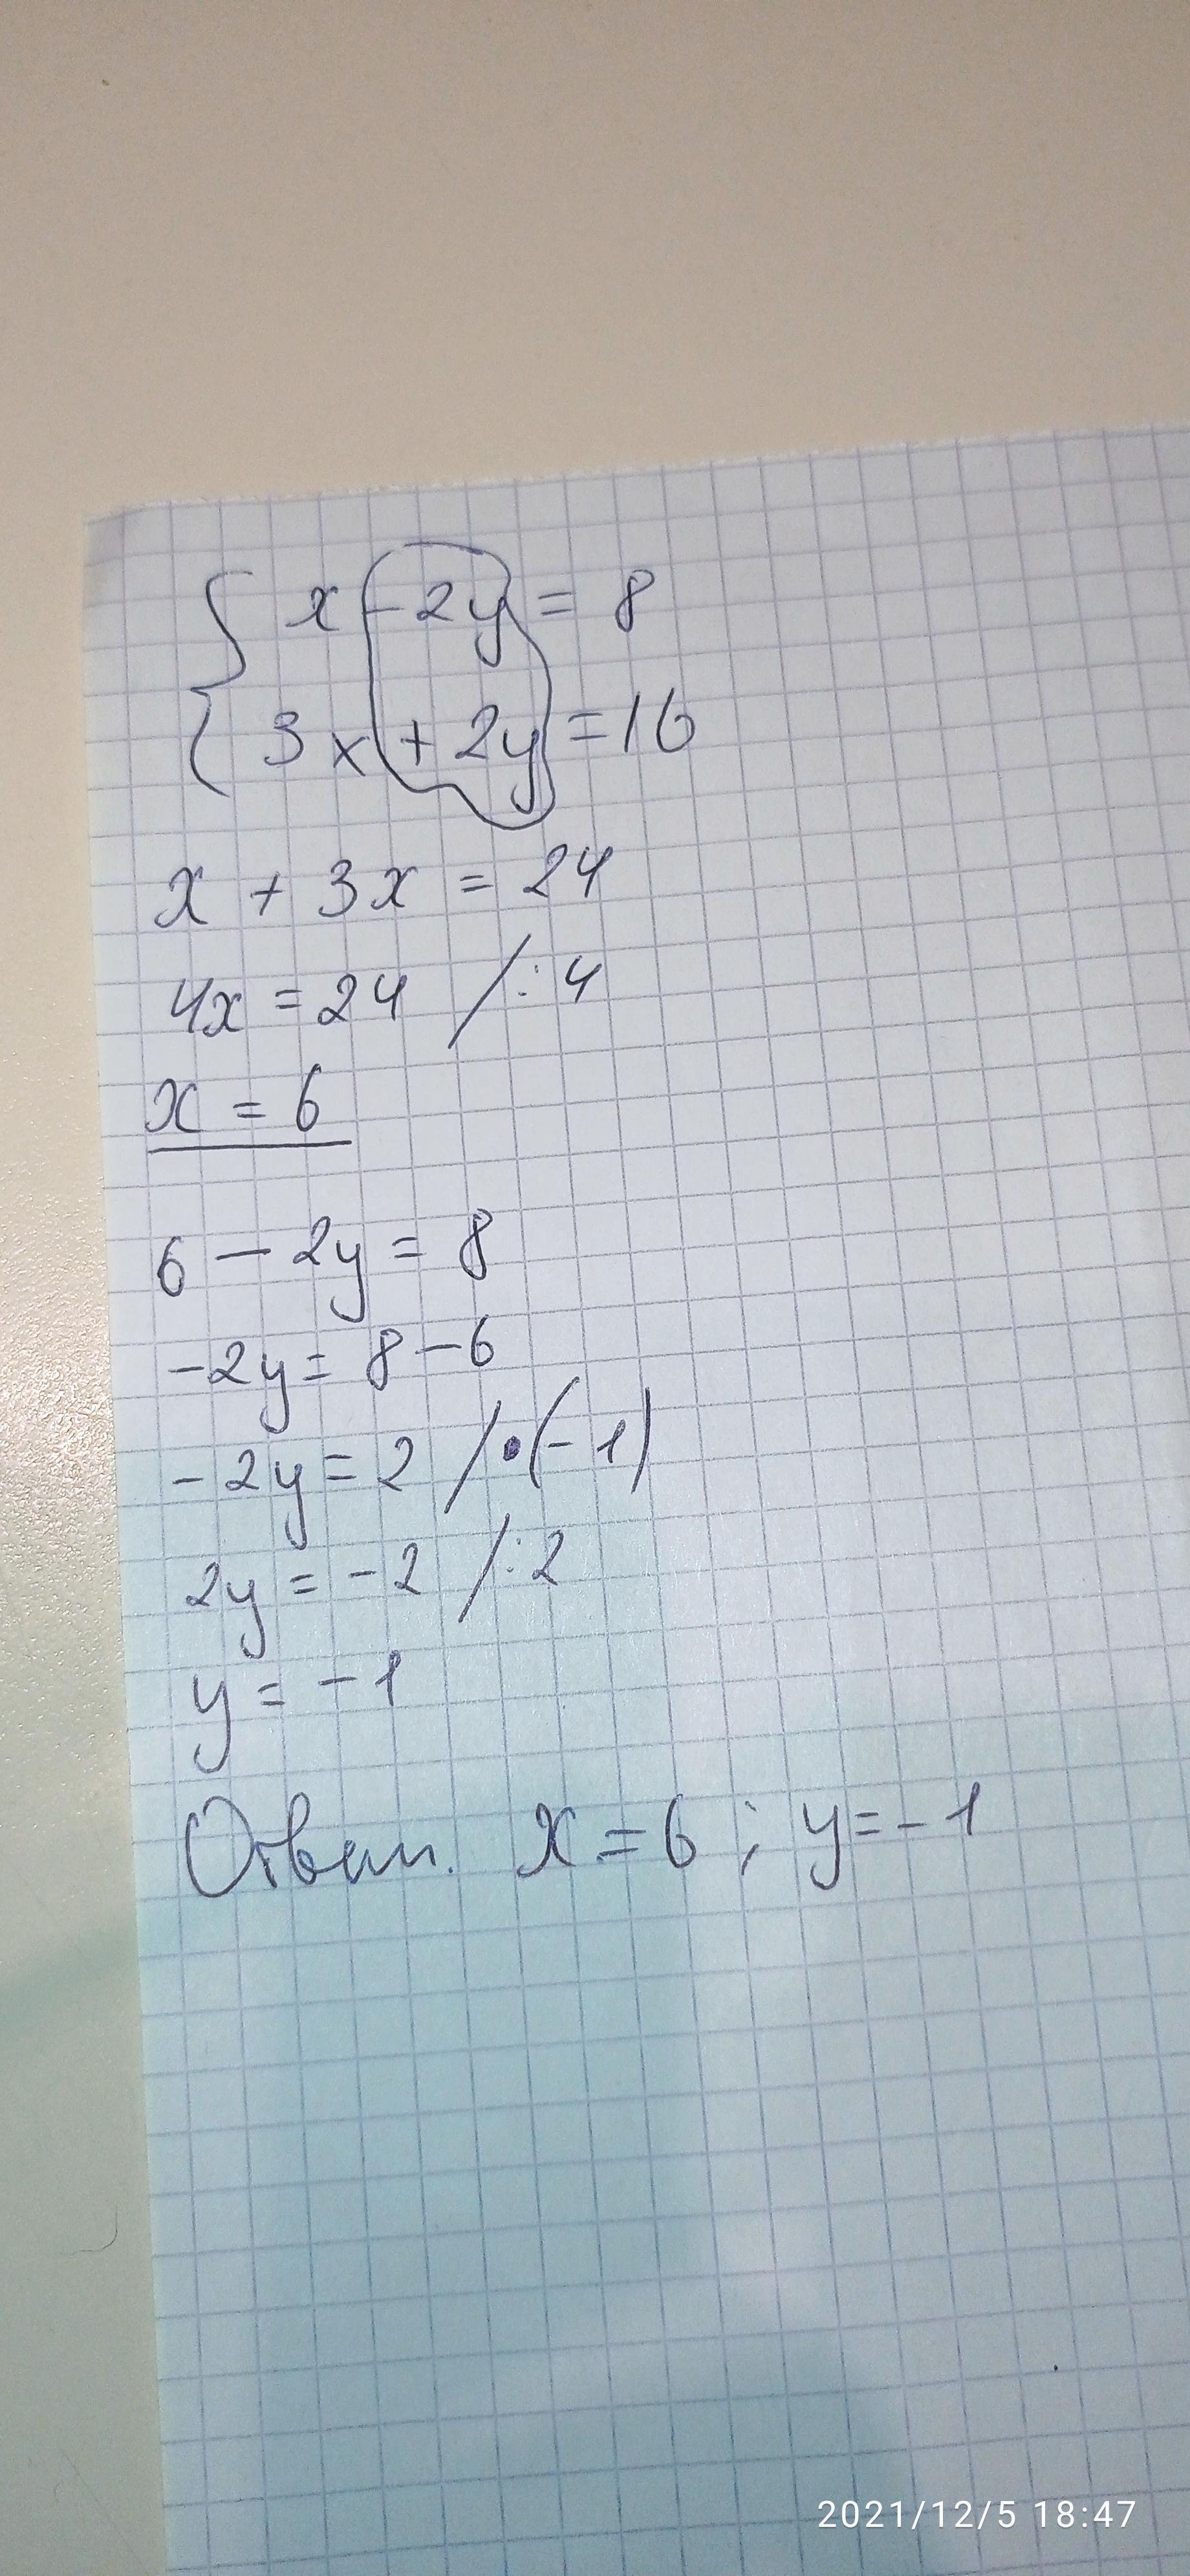 { x - 2y = 8
3x + 2y = 16
x + 3x = 24
4x = 24 /:4
x = 6
6 - 2y = 8
-2y = 8 - 6
-2y = 2 /•(-1)
2y = -2 /:2
y = -1
Ответ. x = 6; y = -1
2021/12/5 18:47